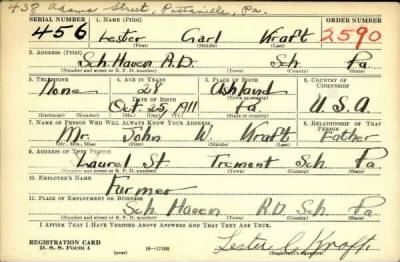 438 Adams Street, Pottsville, Pa.
SERIAL NUMBER 1. NAME (Print) ORDER NUMBER
456 Lester Carl Kraft 2590
(First) (Middle) (Last)
2. ADDRESS (Print)
Sch. Haven R.D. Sch Pa
(Number and street or R. F. D. number) (Town) (County) (State)
3. TELEPHONE 4. AGE IN YEARS 5. PLACE OF BIRTH 6. COUNTRY OF CITIZENSHIP
None 28 Ashland
DATE OF BIRTH
Oct. 25, 1911 Pa. U.S.A
7. NAME OF PERSON WHO WILL ALWAYS KNOW YOUR ADDRESS 8. RELATIONSHIP OF THAT PERSON
Mr. John W. Kraft Father
(Mr., Mrs., Miss) (First) (Middle) (Last)
9. ADDRESS OF THAT PERSON
Laurel St. Tremont Sch. Pa
(Number and street or R. F. D. number) (Town) (County) (State)
10. EMPLOYER'S NAME
Farmer
11. PLACE OF EMPLOYMENT OR BUSINESS
Sch. Haven R.D Sch. Pa.
(Number and street or R. F. D. number) (Town) (County) (State)
I AFFIRM THAT I HAVE VERIFIED ABOVE ANSWERS AND THAT THEY ARE TRUE.
REGISTRATION CARD
D. S. S. Form 1 16—17105 Lester C Kraft
(Registrant's signature)